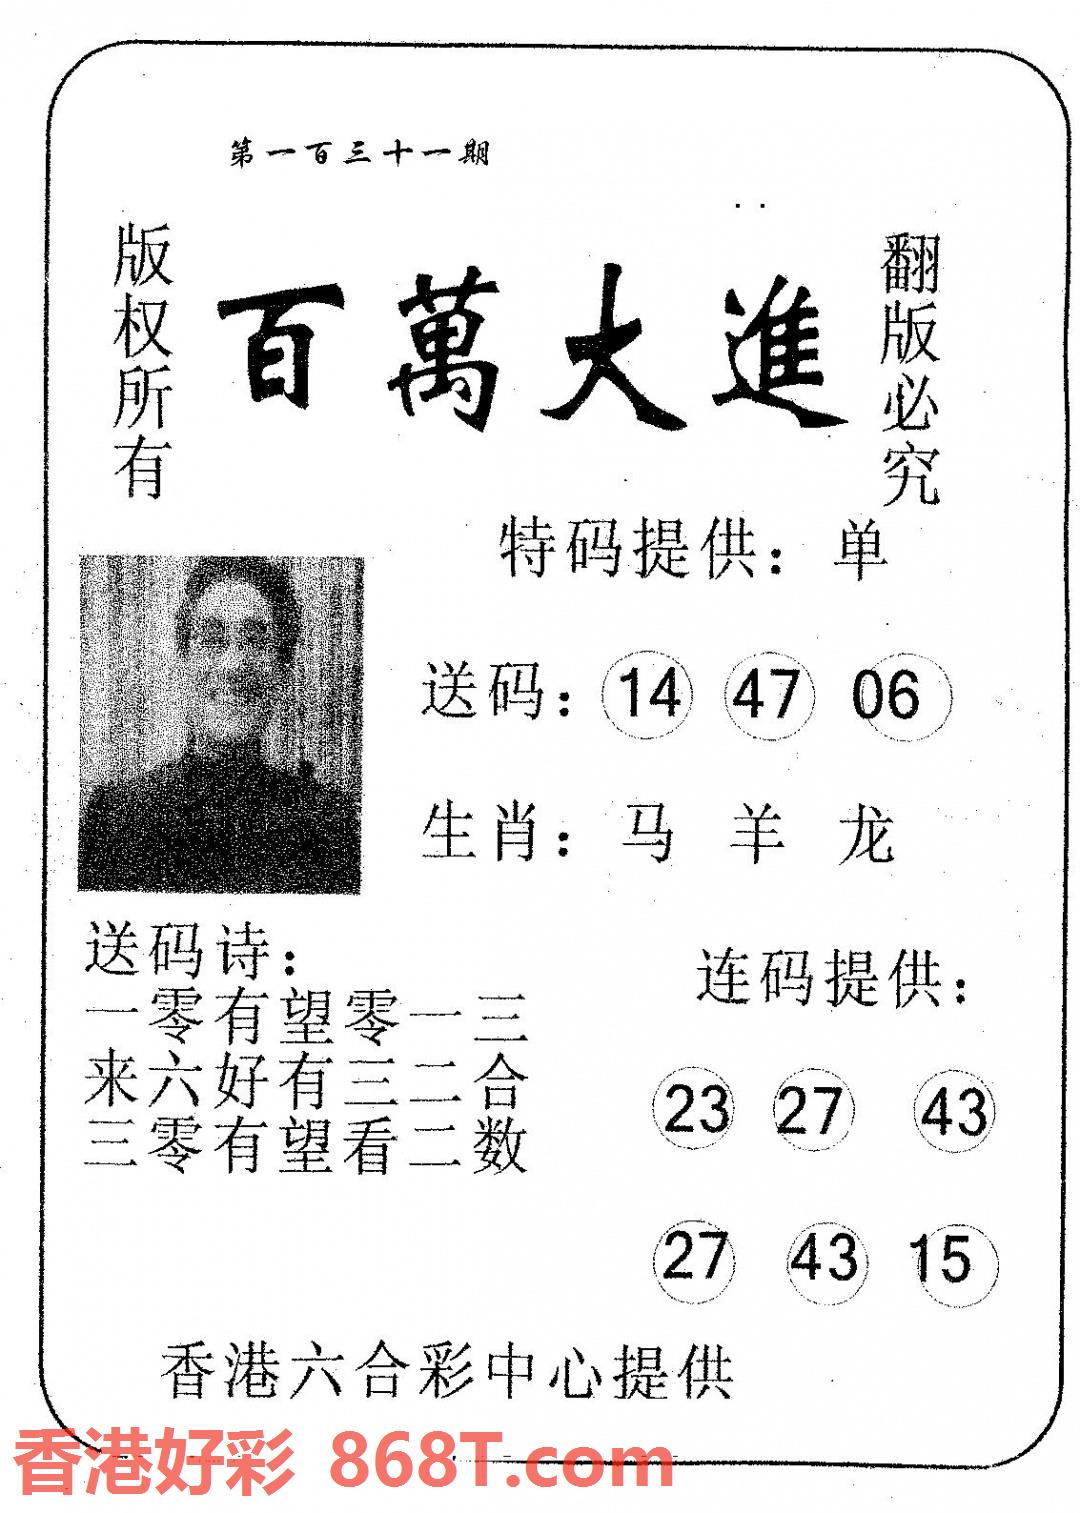 第一百三十一期
版权所有
百萬大進
翻版必究
特码提供：单
送码：14 47 06
生肖：马 羊 龙
送码诗：
一零有望零一三
来六好有三二合
三零有望看二数
连码提供：
23 27 43
27 43 15
香港六合彩中心提供
香港好彩 868T.com